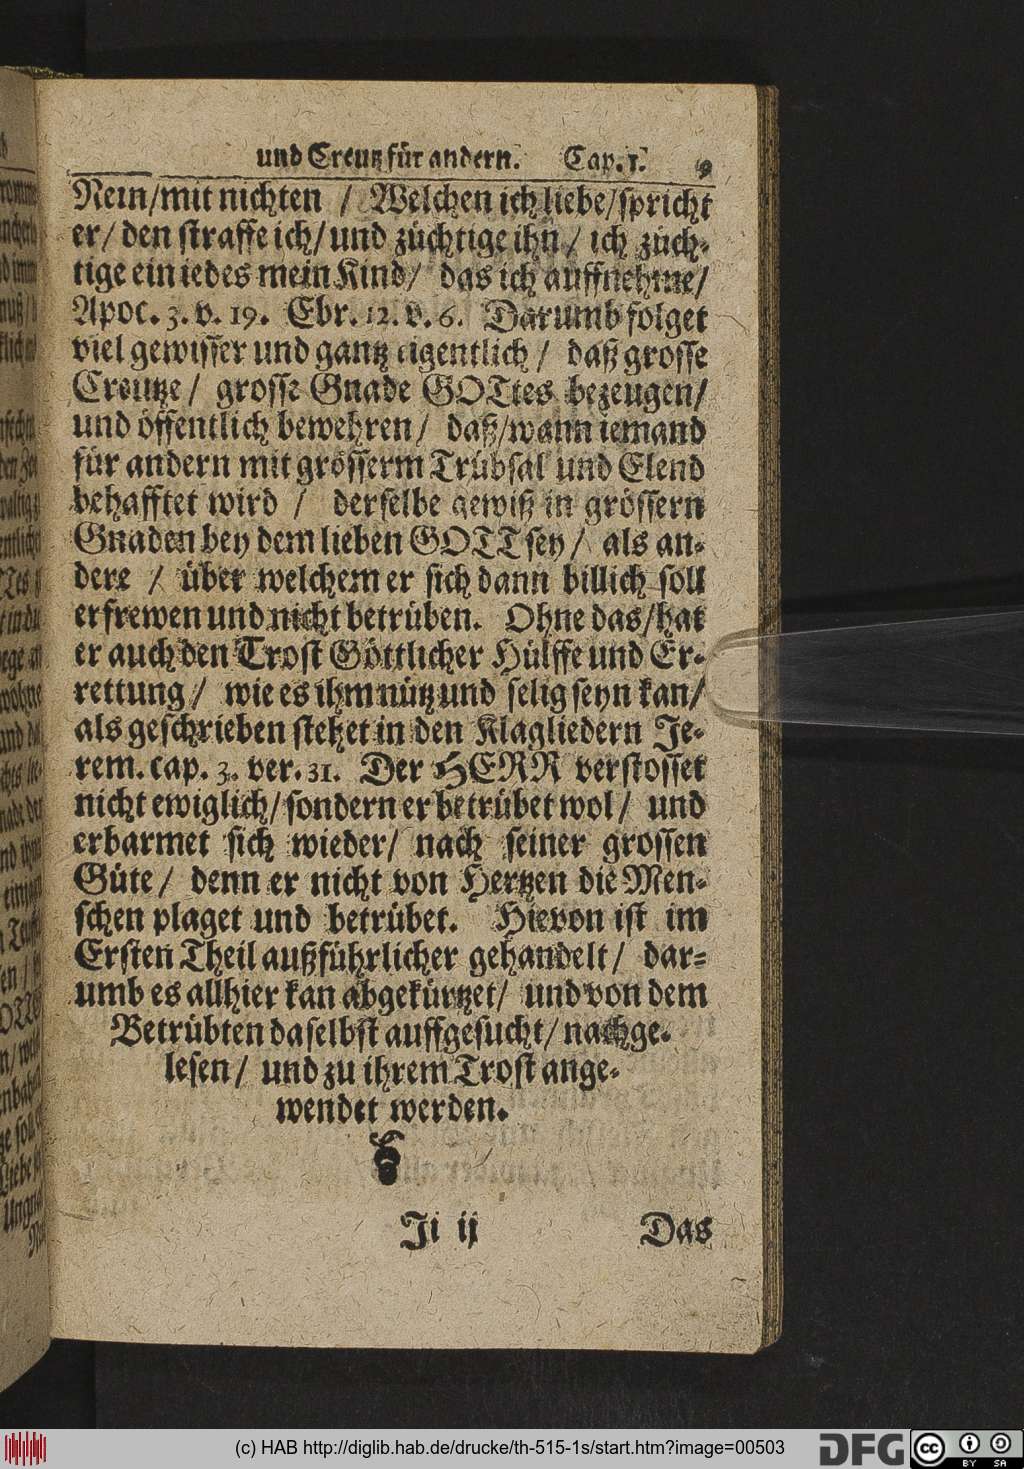 und Creutz für andern. Cap. 1. 9
Nein/mit nichten / Welchen ich liebe/spricht
er/ den straffe ich/ und züchtige ihn / ich züch-
tige ein iedes mein Kind/ das ich auffnehme/
Apoc. 3. v. 19. Ebr. 12. v. 6. Darumb folget
viel gewisser und gantz eigentlich / daß grosse
Creutze / grosse Gnade GOTtes bezeugen/
und öffentlich bewehren / daß/wann iemand
für andern mit grösserm Trübsal und Elend
behafftet wird / derselbe gewiß in grössern
Gnaden bey dem lieben GOTT sey / als an-
dere / über welchem er sich dann billich soll
erfrewen und nicht betrüben. Ohne das/hat
er auch den Trost Göttlicher Hülffe und Er-
rettung / wie es ihm nütz und selig seyn kan/
als geschrieben stehet in den Klagliedern Je-
rem. cap. 3. ver. 31. Der HERR verstosset
nicht ewiglich/ sondern er betrübet wol / und
erbarmet sich wieder/ nach seiner grossen
Güte / denn er nicht von Hertzen die Men-
schen plaget und betrübet. Hievon ist im
Ersten Theil außführlicher gehandelt / dar-
umb es allhier kan abgekürtzet/ und von dem
Betrübten daselbst auffgesucht / nachge-
lesen / und zu ihrem Trost ange-
wendet werden.
Ii ij Das
(c) HAB http://diglib.hab.de/drucke/th-515-1s/start.htm?image=00503
DFG
cc BY SA